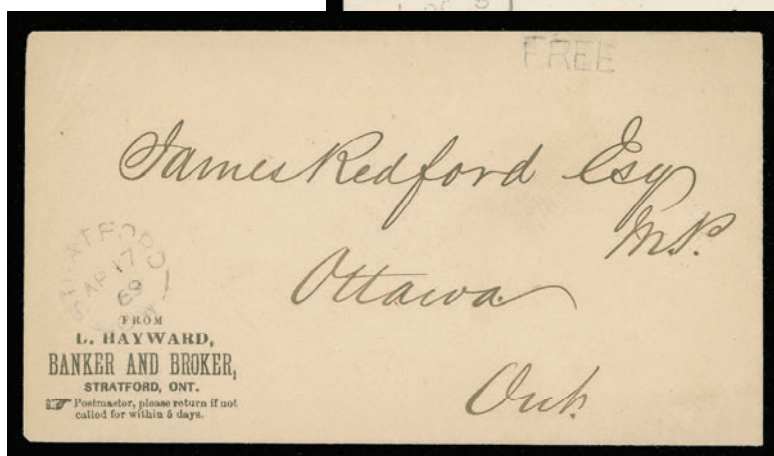 FREE
James Redford Esq
M.P.
Ottawa
Ont.
STRATFORD
AP 17
69
FROM
L. HAYWARD,
BANKER AND BROKER,
STRATFORD, ONT.
Postmaster, please return if not
called for within 5 days.